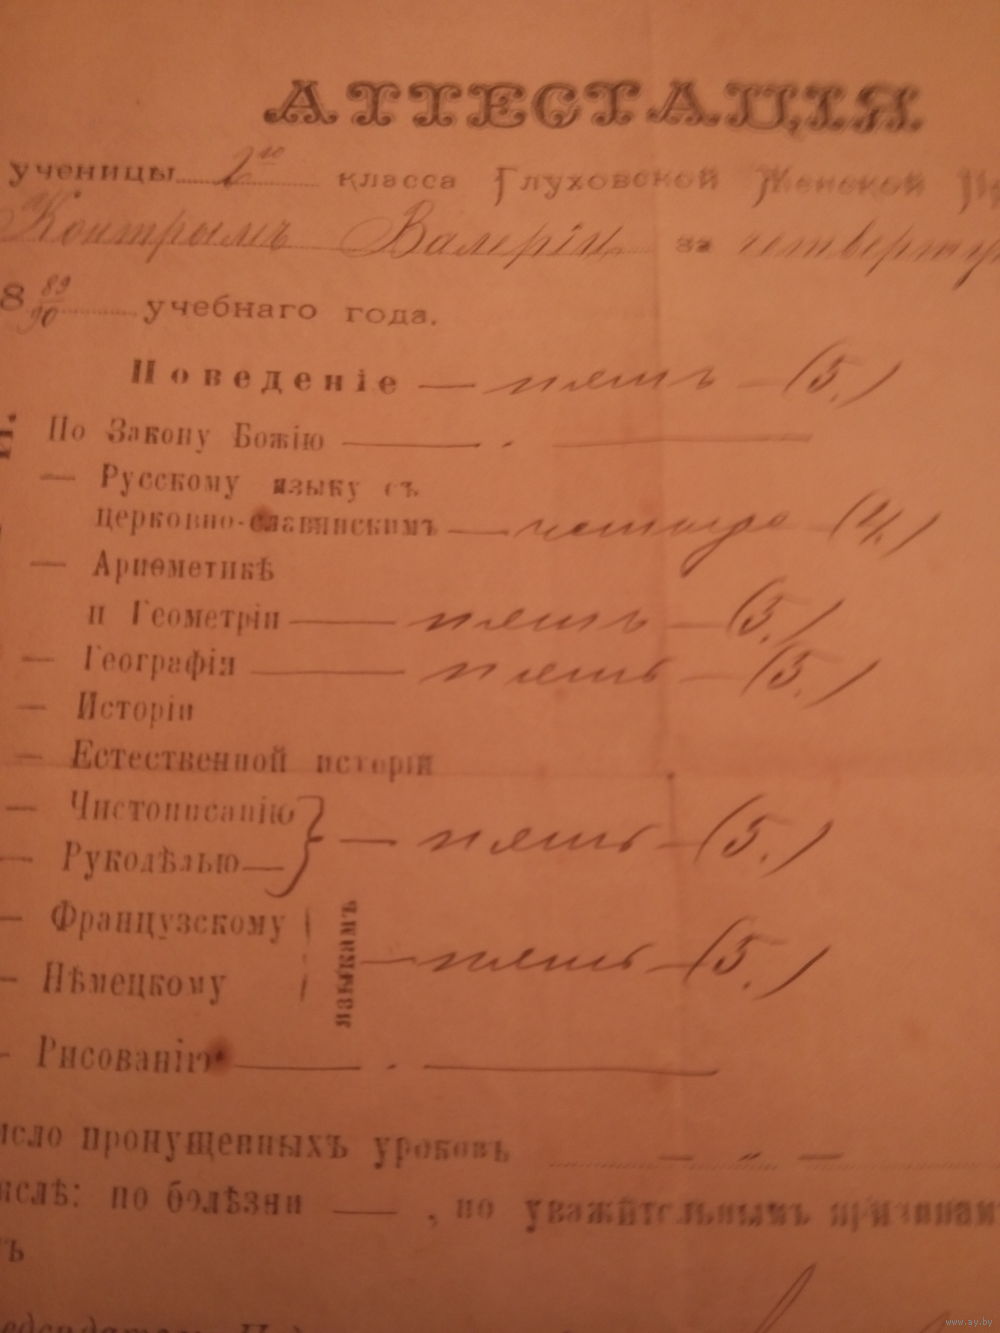 АТТЕСТАЦІЯ
ученицы 2го класса Глуховской Женской
Контрымъ Валеріи за четверту
8 89/90 учебнаго года.
Поведеніе — пять — (5.)
По Закону Божію — „ —
— Русскому языку съ
церковно-славянскимъ — четыре — (4.)
— Ариѳметикѣ
и Геометріи — пять — (5.)
— Географія — пять — (5.)
— Исторіи
— Естественной исторіи
— Чистописанію
— Рукодѣлью — } — пять — (5.)
— Французскому
— Нѣмецкому } языкамъ — пять — (5.)
— Рисованію — „ —
исло пропущенныхъ уроковъ — „ —
ислѣ: по болѣзни — , по уважительнымъ причинам
ъ
www.ay.by